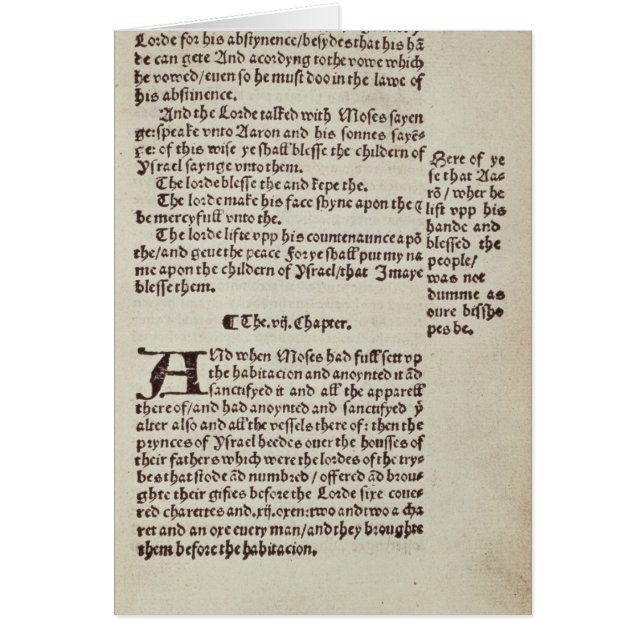 Lorde for his abstynence/besydes that his hā
de can gete And acordyng to the vowe which
he vowed/euen so he must doo in the lawe of
his abstinence.
And the Lorde talked with Moses sayen
ge: speake vnto Aaron and his sonnes sayē-
ge: of this wise ye shall blesse the childern of
Ysrael saynge vnto them.
The lorde blesse the and kepe the.
The lorde make his face shyne apon the &
be mercyfull vnto the.
The lorde lifte vpp his countenaunce apō
the/and geue the peace For ye shall put my na
me apon the childern of Ysrael/that I maye
blesse them.
Here of ye
se that Aa-
rō/wher he
lift vpp his
hande and
blessed the
people/
was not
dumme as
oure bissho
pes be.
¶ The .vij. Chapter.
ANd when Moses had full sett vp
the habitacion and anoynted it ād
sanctifyed it and all the apparell
there of/and had anoynted and sanctifyed ẏ
alter also and all the vessels there of: then the
prynces of Ysrael heedes ouer the housses of
their fathers which were the lordes of the try-
bes that stode ād numbred/offered ād brou-
ghte their giftes before the Lorde sixe coue-
red charettes and .xij. oxen: two and two a cha
ret and an oxe euery man/and they broughte
them before the habitacion.